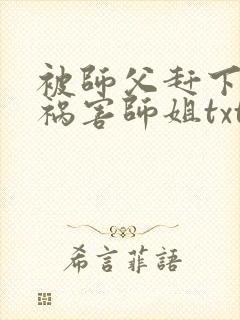 被師父赶下
祸害師姐txt
希言菲語